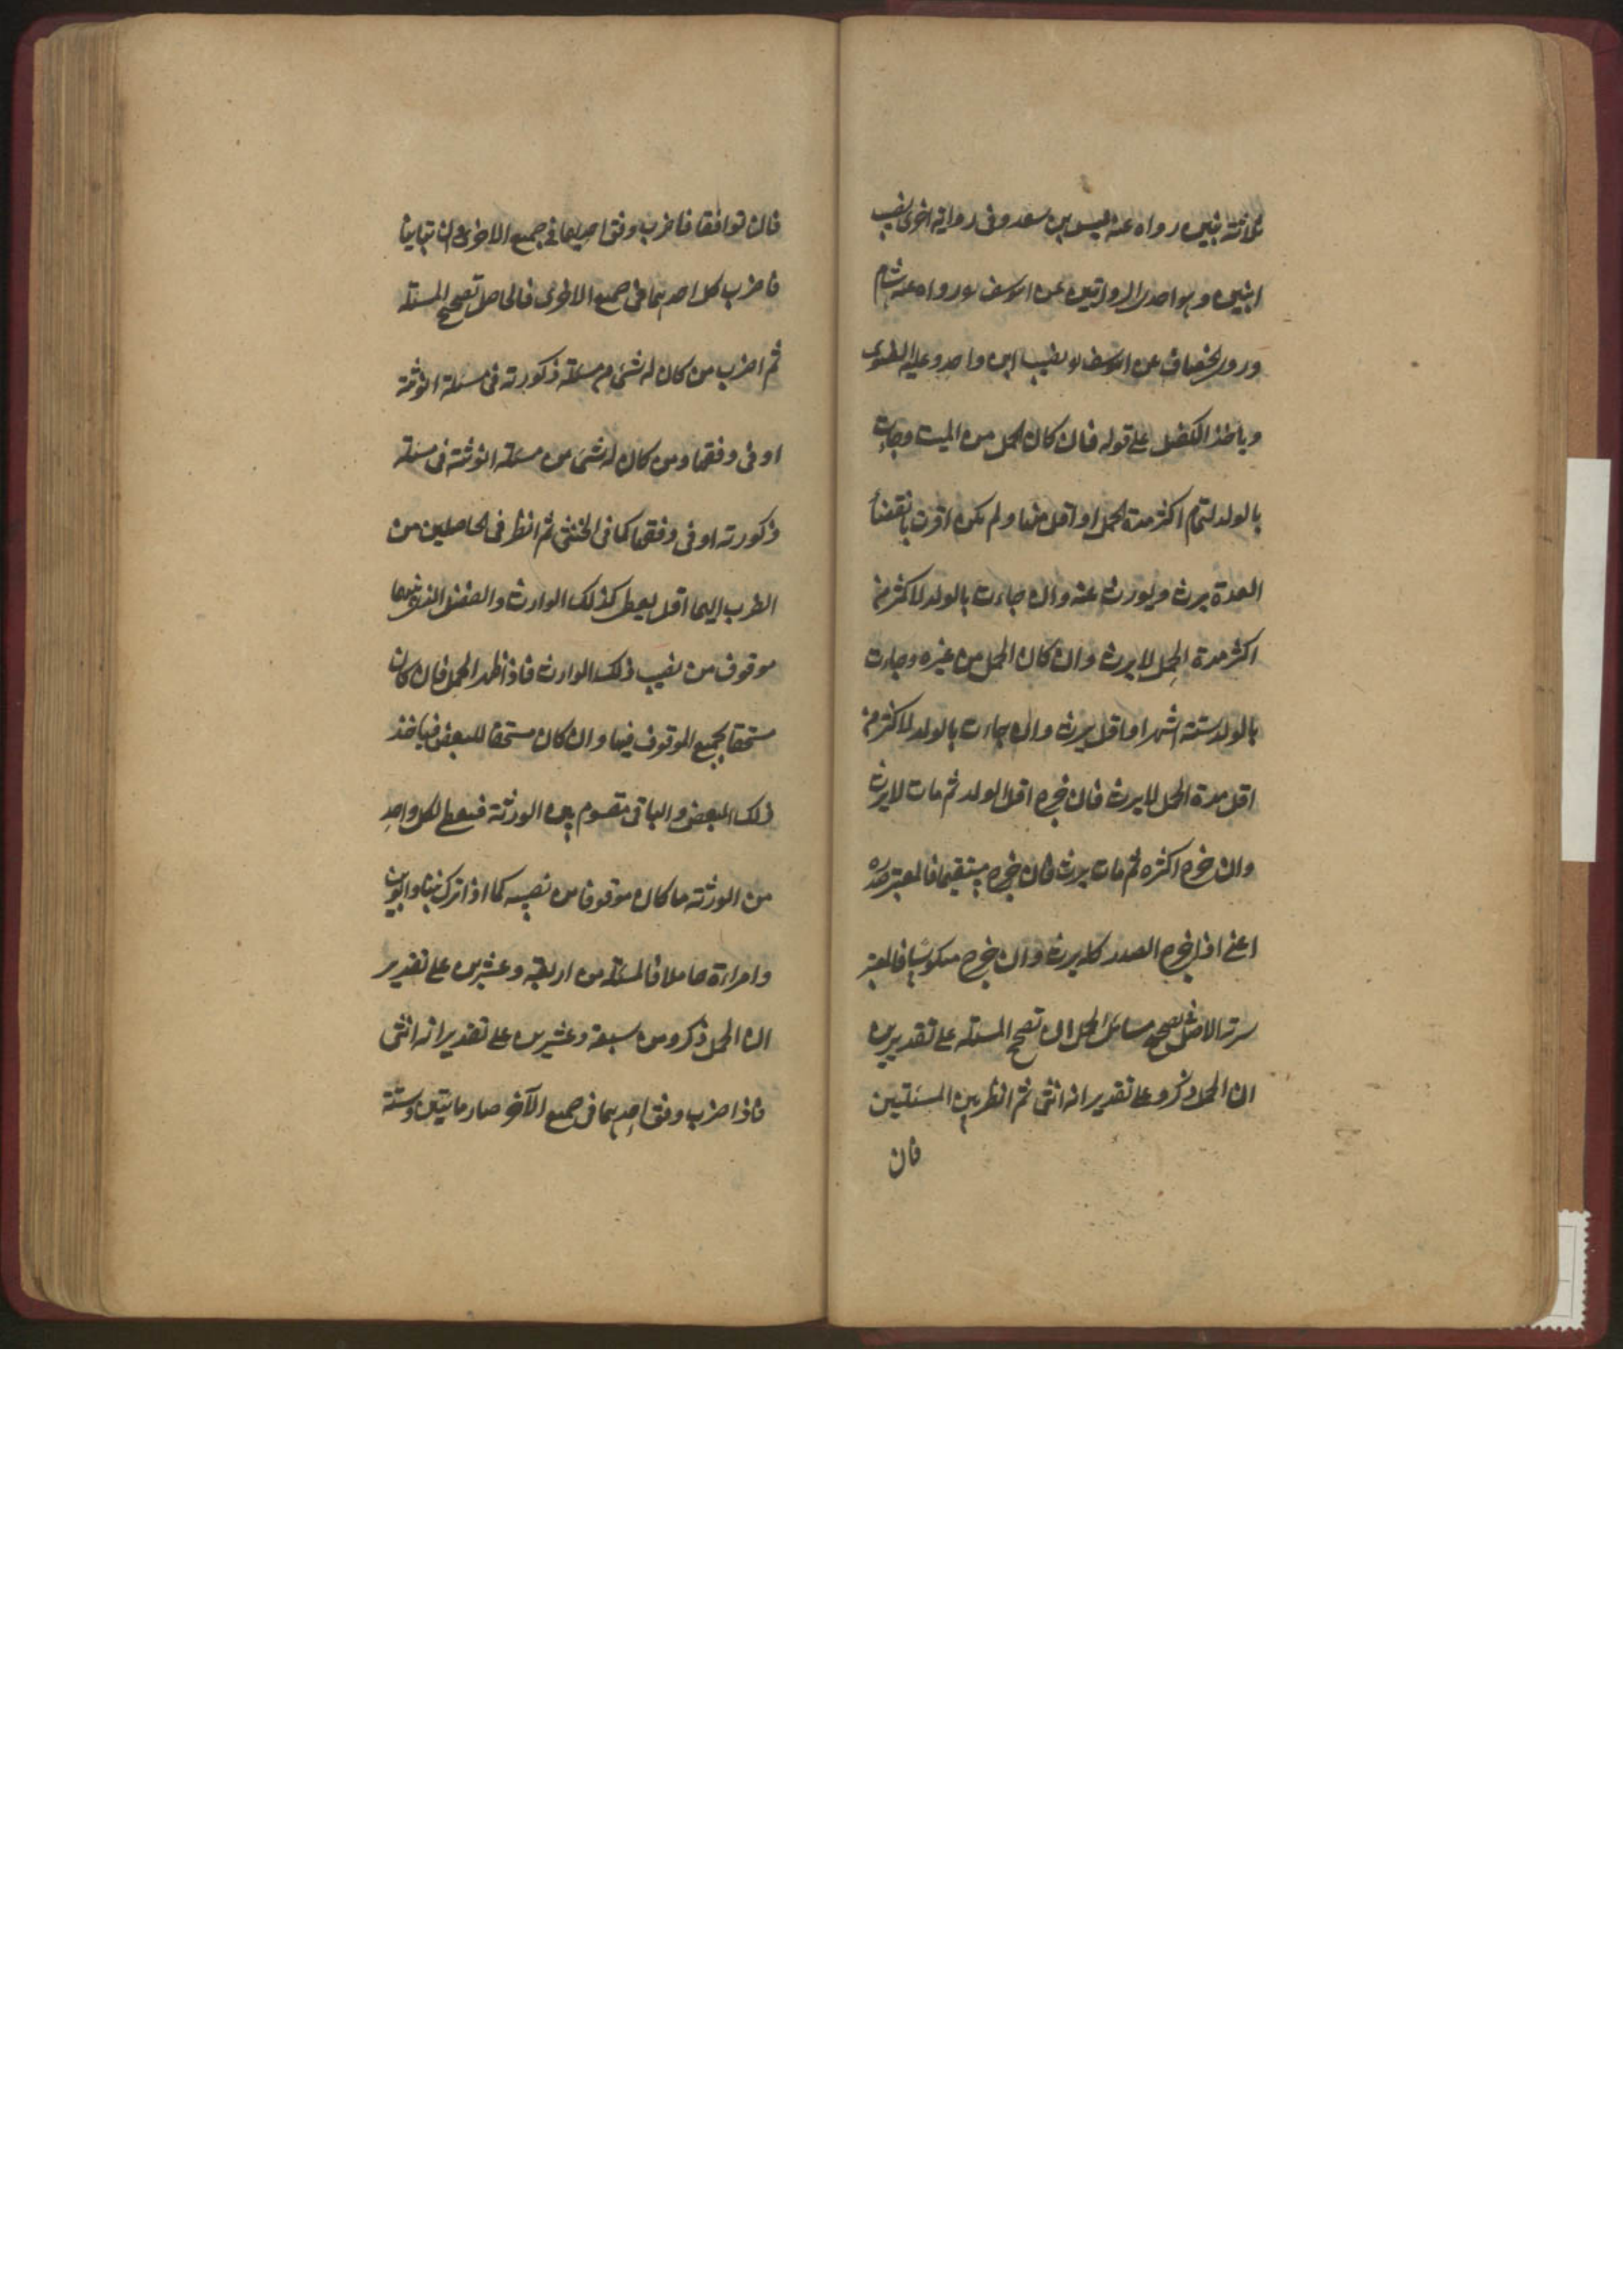 ثلاثة بنين رواه عنه ليس بن سعد وفى رواية اخرى نصيب
ابنين وهو احدى الروايتين عن ابى يوسف رواه عنه هشام
وروى الخصاف عن ابى يوسف نصيب ابن واحد وعليه الفتوى
وياخذ الكفيل على قوله فان كان الحمل من الميت وجاءت
بالولد لتمام اكثر مدة الحمل او اقل منها ولم يكن اقرت بانقضاء
العدة يرث ويورث عنه وان جاءت بالولد لاكثر من
اكثر مدة الحمل لا يرث وان كان الحمل من غيره وجاءت
بالولد لستة اشهر او اقل يرث وان جاءت بالولد لاكثر من
اقل مدة الحمل لا يرث فان خرج اقل الولد ثم مات لا يرث
وان خرج اكثره ثم مات يرث فان خرج مستقيما فالمعتبر صدره
اعنى اذا خرج الصدر كله يرث وان خرج منكوسا فالمعتبر
سرته الاصل فى تصحيح مسائل الحمل ان تصحح المسئلة على تقديرين
ان الحمل ذكر وعلى تقدير انه انثى ثم انظر بين المسئلتين
فان
فان توافقا فاضرب وفق احديهما فى جميع الاخرى وان تباينا
فاضرب كل احديهما فى جميع الاخرى فالحاصل تصحيح المسئلة
ثم اضرب من كان له شىء من مسئلة ذكورته فى مسئلة انوثته
او فى وفقها ومن كان له شىء من مسئلة انوثته فى مسئلة
ذكورته او فى وفقها كما فى الخنثى ثم انظر فى الحاصلين من
الضرب ايهما اقل يعطى كذلك الوارث والفضل الذى بينهما
موقوف من نصيب ذلك الوارث فاذا ظهر الحمل فان كان
مستحقا لجميع الموقوف فبها وان كان مستحقا للبعض فياخذ
ذلك البعض والباقى مقسوم بين الورثة فيعطى لكل واحد
من الورثة ما كان موقوفا من نصيبه كما اذا ترك بنتا وابوين
وامراءة حاملا فالمسئلة من اربعة وعشرين على تقدير
ان الحمل ذكر ومن سبعة وعشرين على تقدير انه انثى
فاذا ضرب وفق احديهما فى جميع الآخر صار مايتين وستة